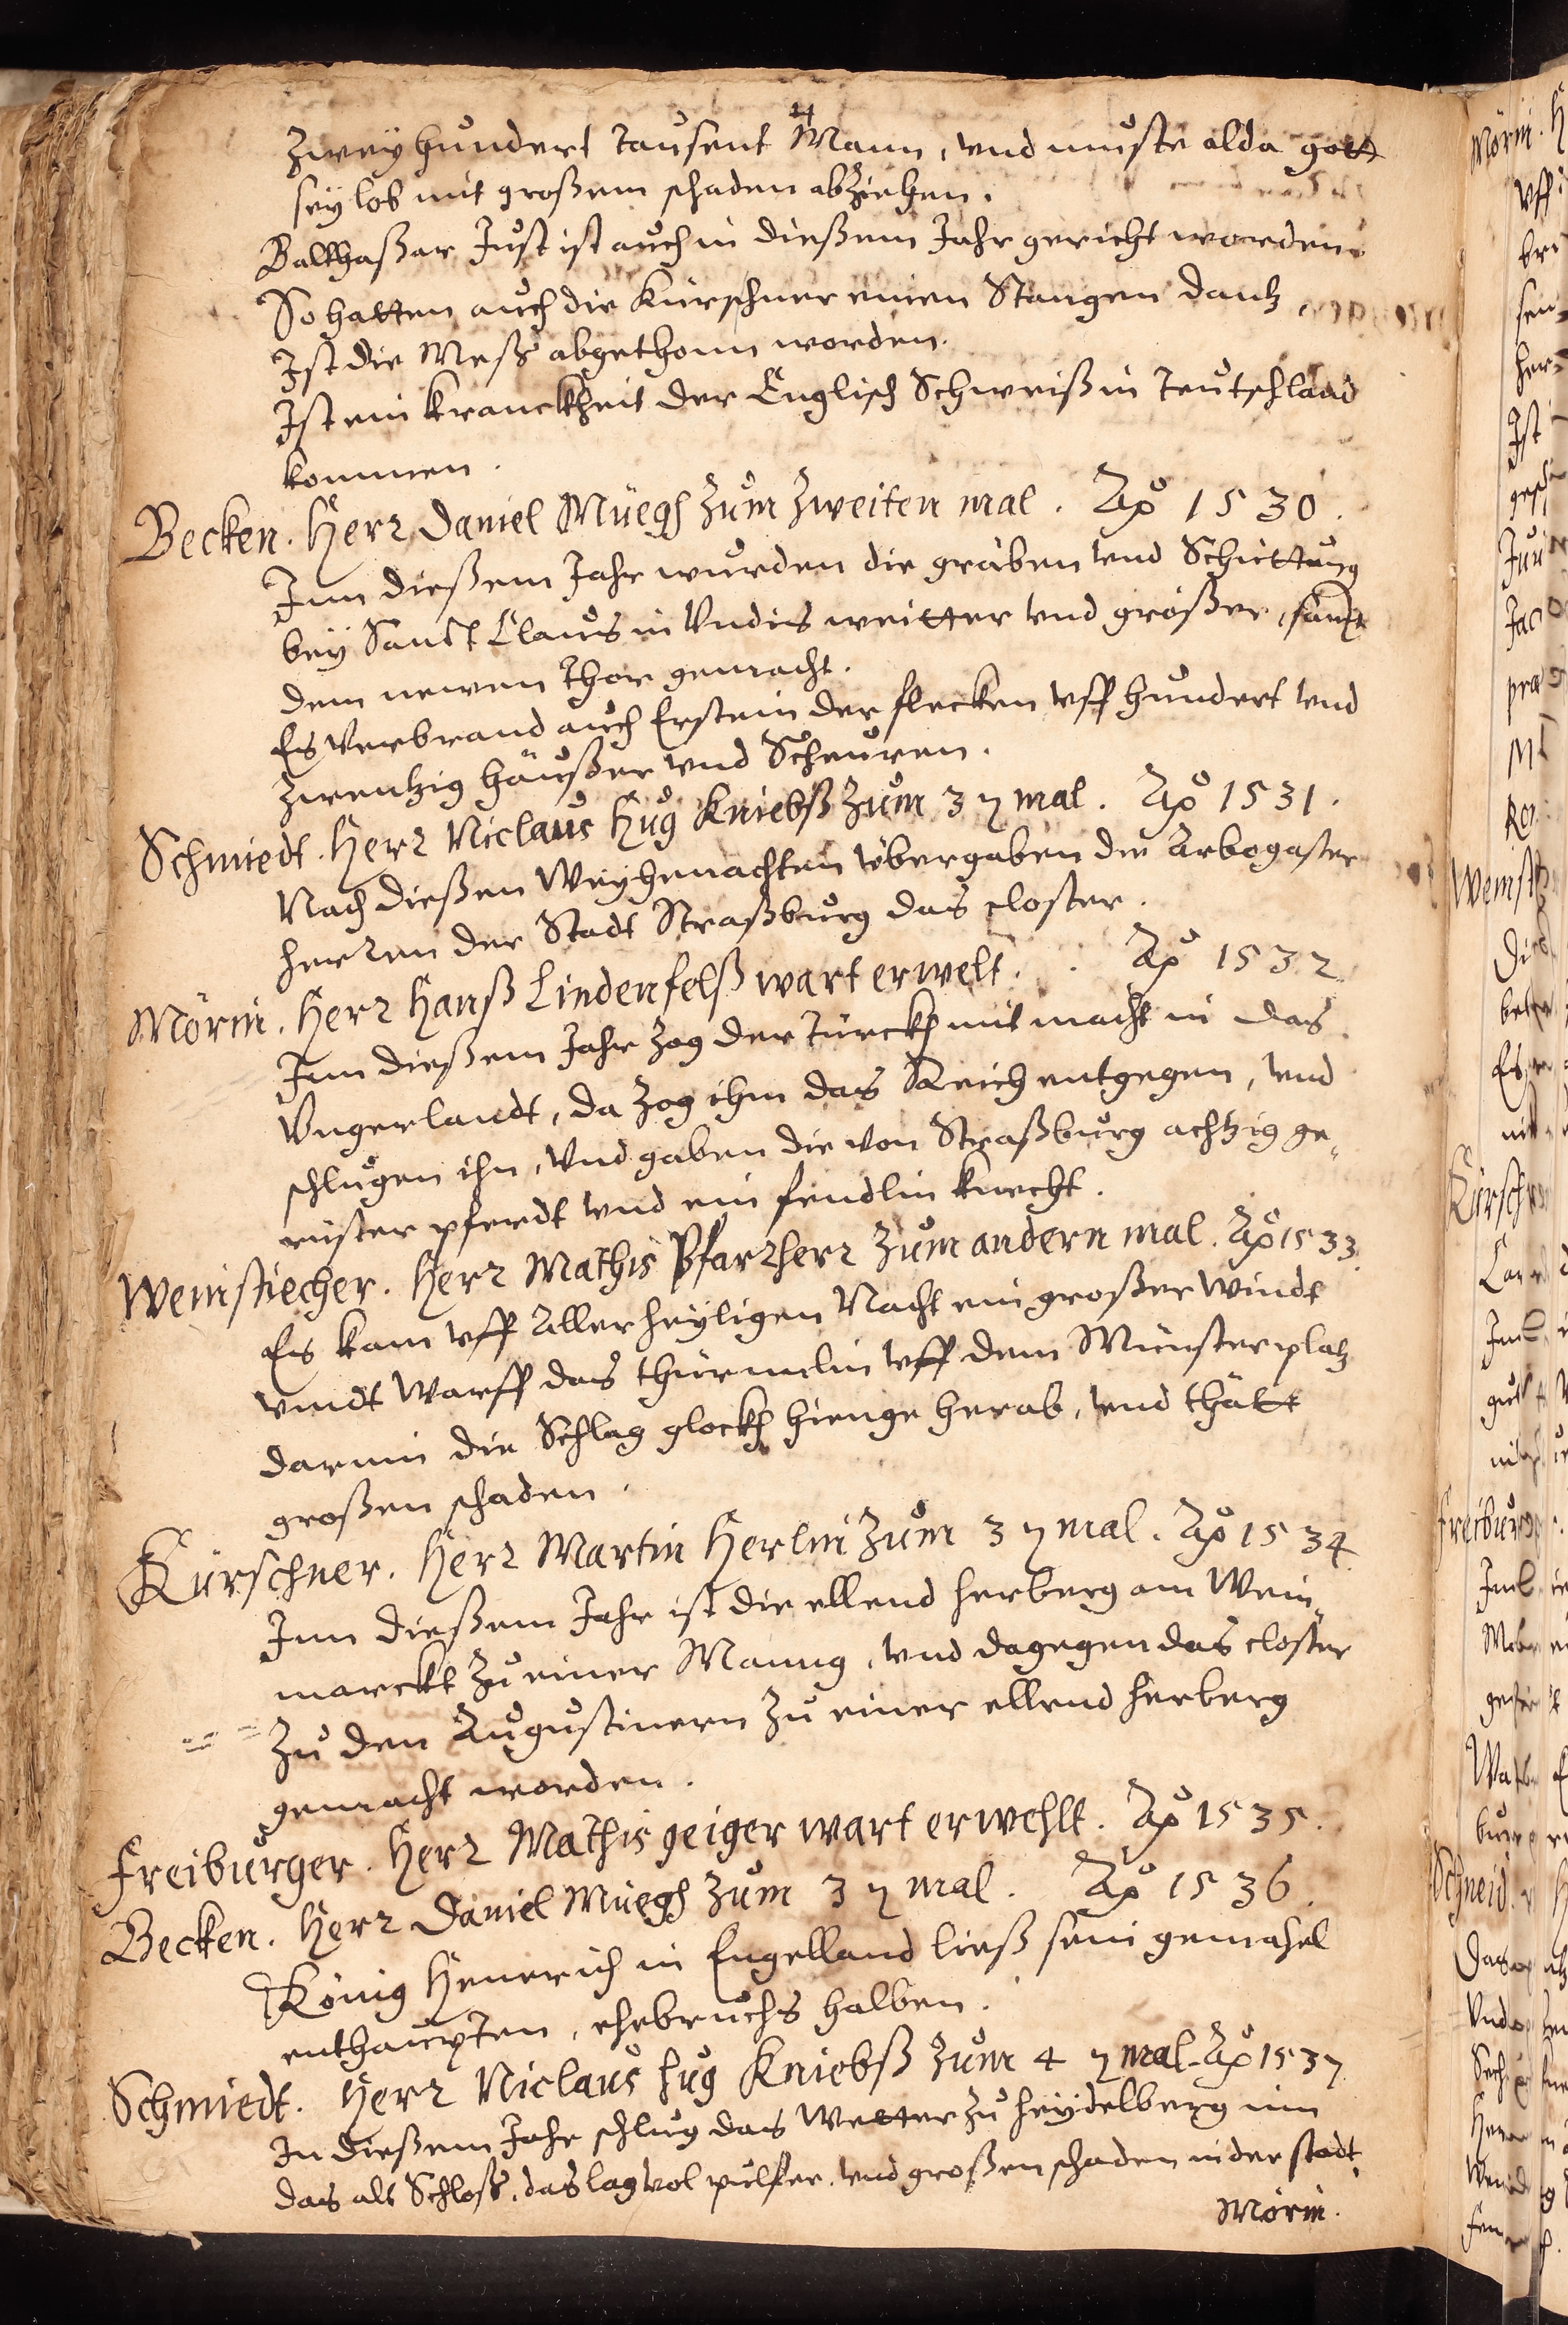 zweyhundert tausent Mann, vnd muste alda gott
sey lob mit großem schaden abziehen.
Balthaßar Just ist auch in dießem Jahr gericht worden.
So hatten auch die Kürschner einen Stangen dantz.
Ist die Meß abgethonn worden.
Ist ein kranckheit der Englisch Schweiß in Teutschland
kommen.
Becken. Herr Daniel Müegh zum zweiten mal. Aō 1530.
Inn dießem Jahr wurden die gräben vnd Schüttung
bey Sanct Claus in Vndis weitter vnd größer, sampt
dem newen Thor gemacht.
Es verbrand auch Erstein der flecken vff hundert vnd
zwentzig häußer vnd Scheuren.
Schmiedt. Herr Niclaus Hug Kniebß zum 3ṇ mal. Aō 1531.
Nach dießen Weyhenachten übergaben die Arbogaster
herren der Stadt Straßburg das closter.
Mörin. Herr Hanß Lindenfelß wart erwelt. Aō 1532
Inn dießem Jahr zog der Türckh mit macht in das
Vngerlandt, da zog ihm das Reich entgegen, vnd
schlugen ihn, Vnd gaben die von Straßburg achtzig ge„
rüster pferdt vnd ein fendlin knecht.
Weinstiecher. Herr Mathis Pfarrherr zum andern mal. Aō 1533.
Es kam vff Allerheyligen Nacht ein großer windt
vndt Warff das thürmelin vff dem Münsterplatz
darinn die Schlag glockh hienge herab, vnd thätt
großen schaden.
Kürschner. Herr Martin Herlin zum 3ṇ mal. Aō 1534
Inn dießem Jahr ist die ellend herberg am Wein„
marckt zu einer Manng, vnd dagegen das closter
zu den Augustinern zu einer ellend herberg
gemacht worden.
Freiburger. Herr Mathis geiger wart erwehlt. Aō 1535.
Becken. Herr Daniel Müegh zum 3ṇ mal. Aō 1536.
König Henerich in Engelland ließ sein gemahel
enthaupten, ehebruchs halben.
Schmiedt. Herr Niclaus hug Kniebß zum 4ṇ mal. Aō 1537
In dießem Jahr schlug das Wetter zu heydelberg inn
das alt Schloß, das lag vol pulfer, vnd großen schaden in der stadt.
Mörin.